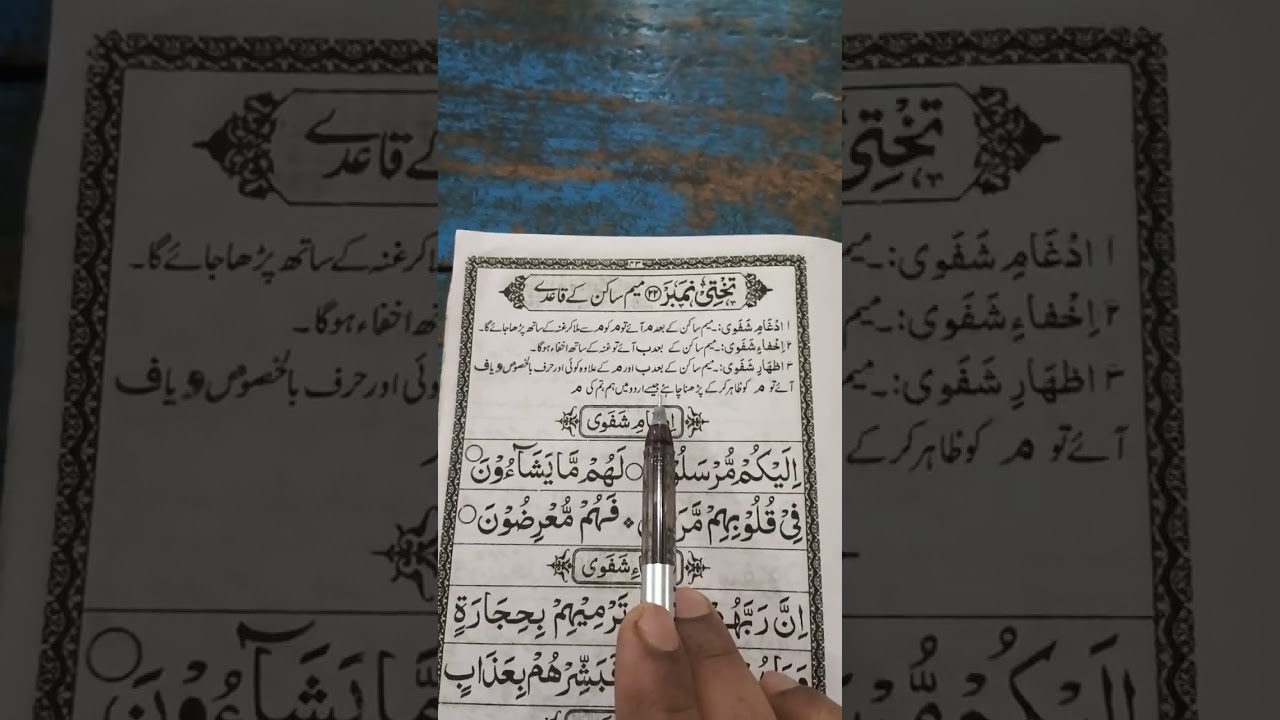 ۲۳
تختی نمبر ۲۲ میم ساکن کے قاعدے
۱ ادْغَامِ شَفَوِی:۔ میم ساکن کے بعد م آئے تو م کو م سے ملا کر غنہ کے ساتھ پڑھا جائے گا۔
۲ اِخْفاءِ شَفَوِی:۔ میم ساکن کے بعد ب آئے تو غنہ کے ساتھ اخفاء ہوگا۔
۳ اظہَارِ شَفَوِی:۔ میم ساکن کے بعد ب اور م کے علاوہ کوئی اور حرف بالخصوص و یا ف
آئے تو م کو ظاہر کر کے پڑھنا چاہئے جیسے اردو میں ہم تم کی م
شَفَوِی
اِلَيْكُمْ مُّرْسَلُ لَهُمْ مَّا يَشَآءُوْنَ
فِيْ قُلُوْبِهِمْ مَّرَ فَهُمْ مُّعْرِضُوْنَ
شَفَوِی
اِنَّ رَبَّهُ تَرْمِيْهِمْ بِحِجَارَةٍ
فَبَشِّرْهُمْ بِعَذَابٍ